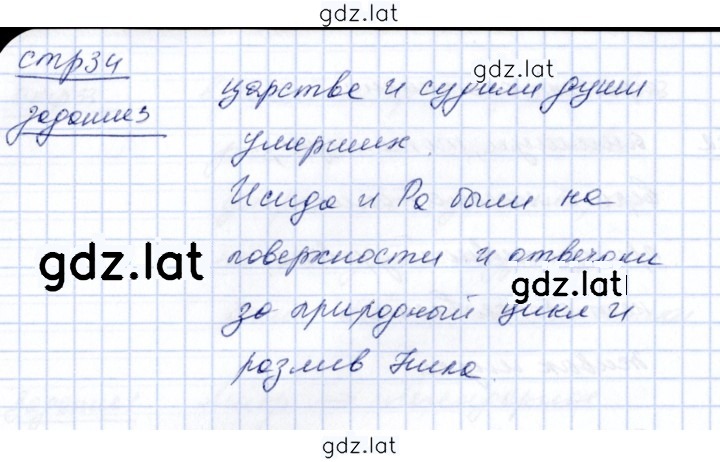 gdz.lat
стр34
задание3
gdz.lat
царстве и судили души
умерших.
Исида и Ра были на
gdz.lat
поверхности и отвечали
gdz.lat
за природный цикл и
разлив Нила.
gdz.lat